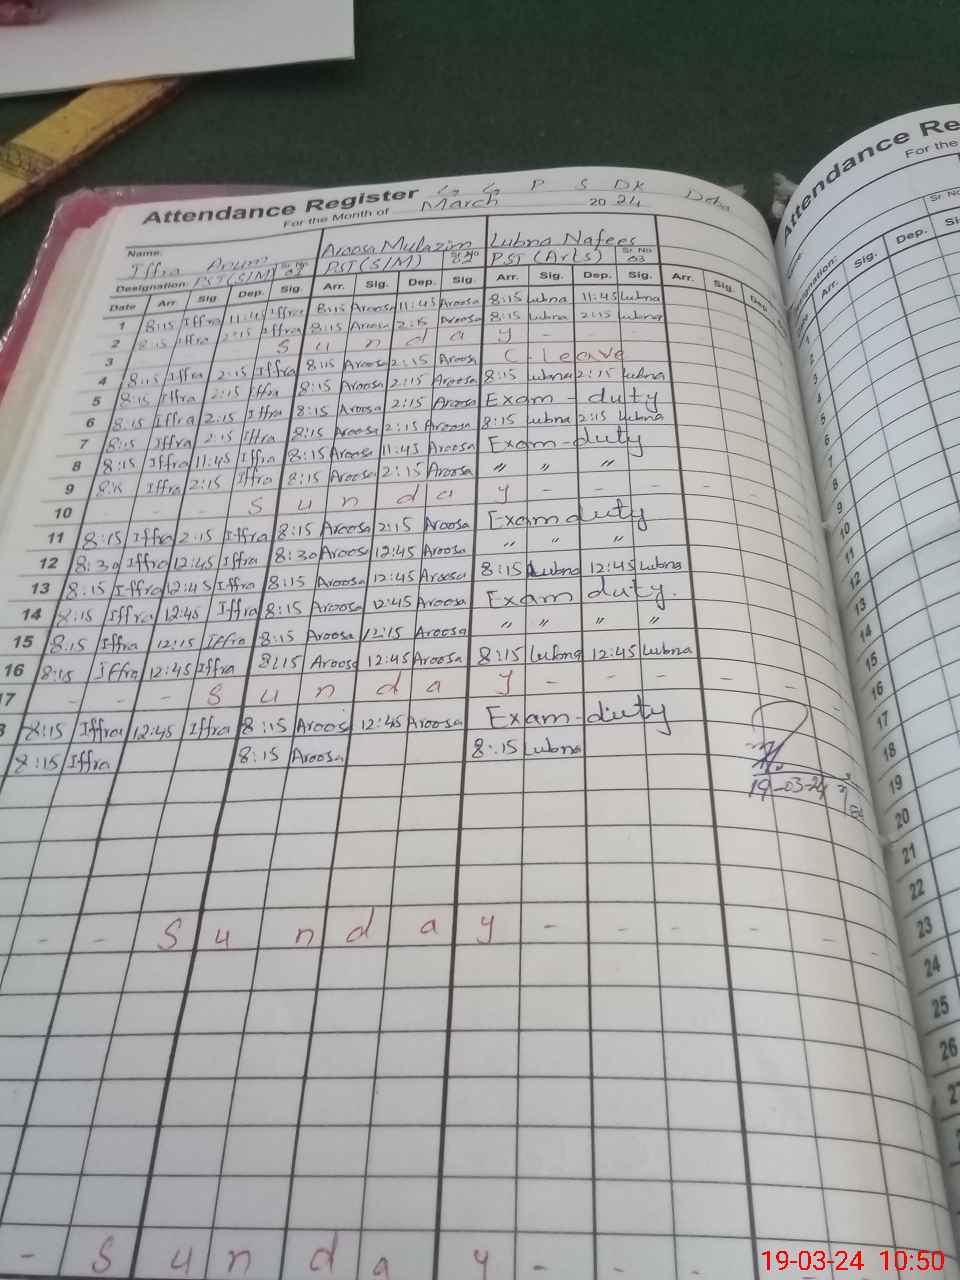 Attendance Register G G P S DK Deha
For the Month of March 2024
Name: Iffra Anum Aroosa Mulazim Lubna Nafees
Designation: PST(S/M) Sr No 02 PST(S/M) Sr No PST(Arts) Sr No 03
Date Arr. Sig. Dep. Sig. Arr. Sig. Dep. Sig. Arr. Sig. Dep. Sig. Arr. Sig. Dep
1 8:15 Iffra 11:45 Iffra 8:15 Aroosa 11:45 Aroosa 8:15 Lubna 11:45 Lubna
2 8:15 Iffra 2:15 Iffra 8:15 Aroosa 2:15 Aroosa 8:15 Lubna 2:15 Lubna
3 S u n d a y - -
4 8:15 Iffra 2:15 Iffra 8:15 Aroosa 2:15 Aroosa C-Leave
5 8:15 Iffra 2:15 Iffra 8:15 Aroosa 2:15 Aroosa 8:15 Lubna 2:15 Lubna
6 8:15 Iffra 2:15 Iffra 8:15 Aroosa 2:15 Aroosa Exam - duty
7 8:15 Iffra 2:15 Iffra 8:15 Aroosa 2:15 Aroosa 8:15 Lubna 2:15 Lubna
8 8:15 Iffra 11:45 Iffra 8:15 Aroosa 11:45 Aroosa Exam-duty
9 8:15 Iffra 2:15 Iffra 8:15 Aroosa 2:15 Aroosa " " "
10 - - - S u n d a y - - - - - -
11 8:15 Iffra 2:15 Iffra 8:15 Aroosa 2:15 Aroosa Exam duty
12 8:30 Iffra 12:45 Iffra 8:30 Aroosa 12:45 Aroosa " " "
13 8:15 Iffra 12:45 Iffra 8:15 Aroosa 12:45 Aroosa 8:15 Lubna 12:45 Lubna
14 8:15 Iffra 12:45 Iffra 8:15 Aroosa 12:45 Aroosa Exam duty.
15 8:15 Iffra 12:15 Iffra 8:15 Aroosa 12:15 Aroosa " " " "
16 8:15 Iffra 12:45 Iffra 8:15 Aroosa 12:45 Aroosa 8:15 Lubna 12:45 Lubna
17 - - - S u n d a y - - - - - -
8 8:15 Iffra 12:45 Iffra 8:15 Aroosa 12:45 Aroosa Exam-duty
8:15 Iffra 8:15 Aroosa 8:15 Lubna
19-03-24
- - S u n d a y - - - - -
- S u n d a y - - - -
Attendance Re
For the
Sr No
signation:
Arr. Sig. Dep. Si
1
2
3
4
5
6
7
8
9
10
11
12
13
14
15
16
17
18
19
20
21
22
23
24
25
26
27
19-03-24 10:50